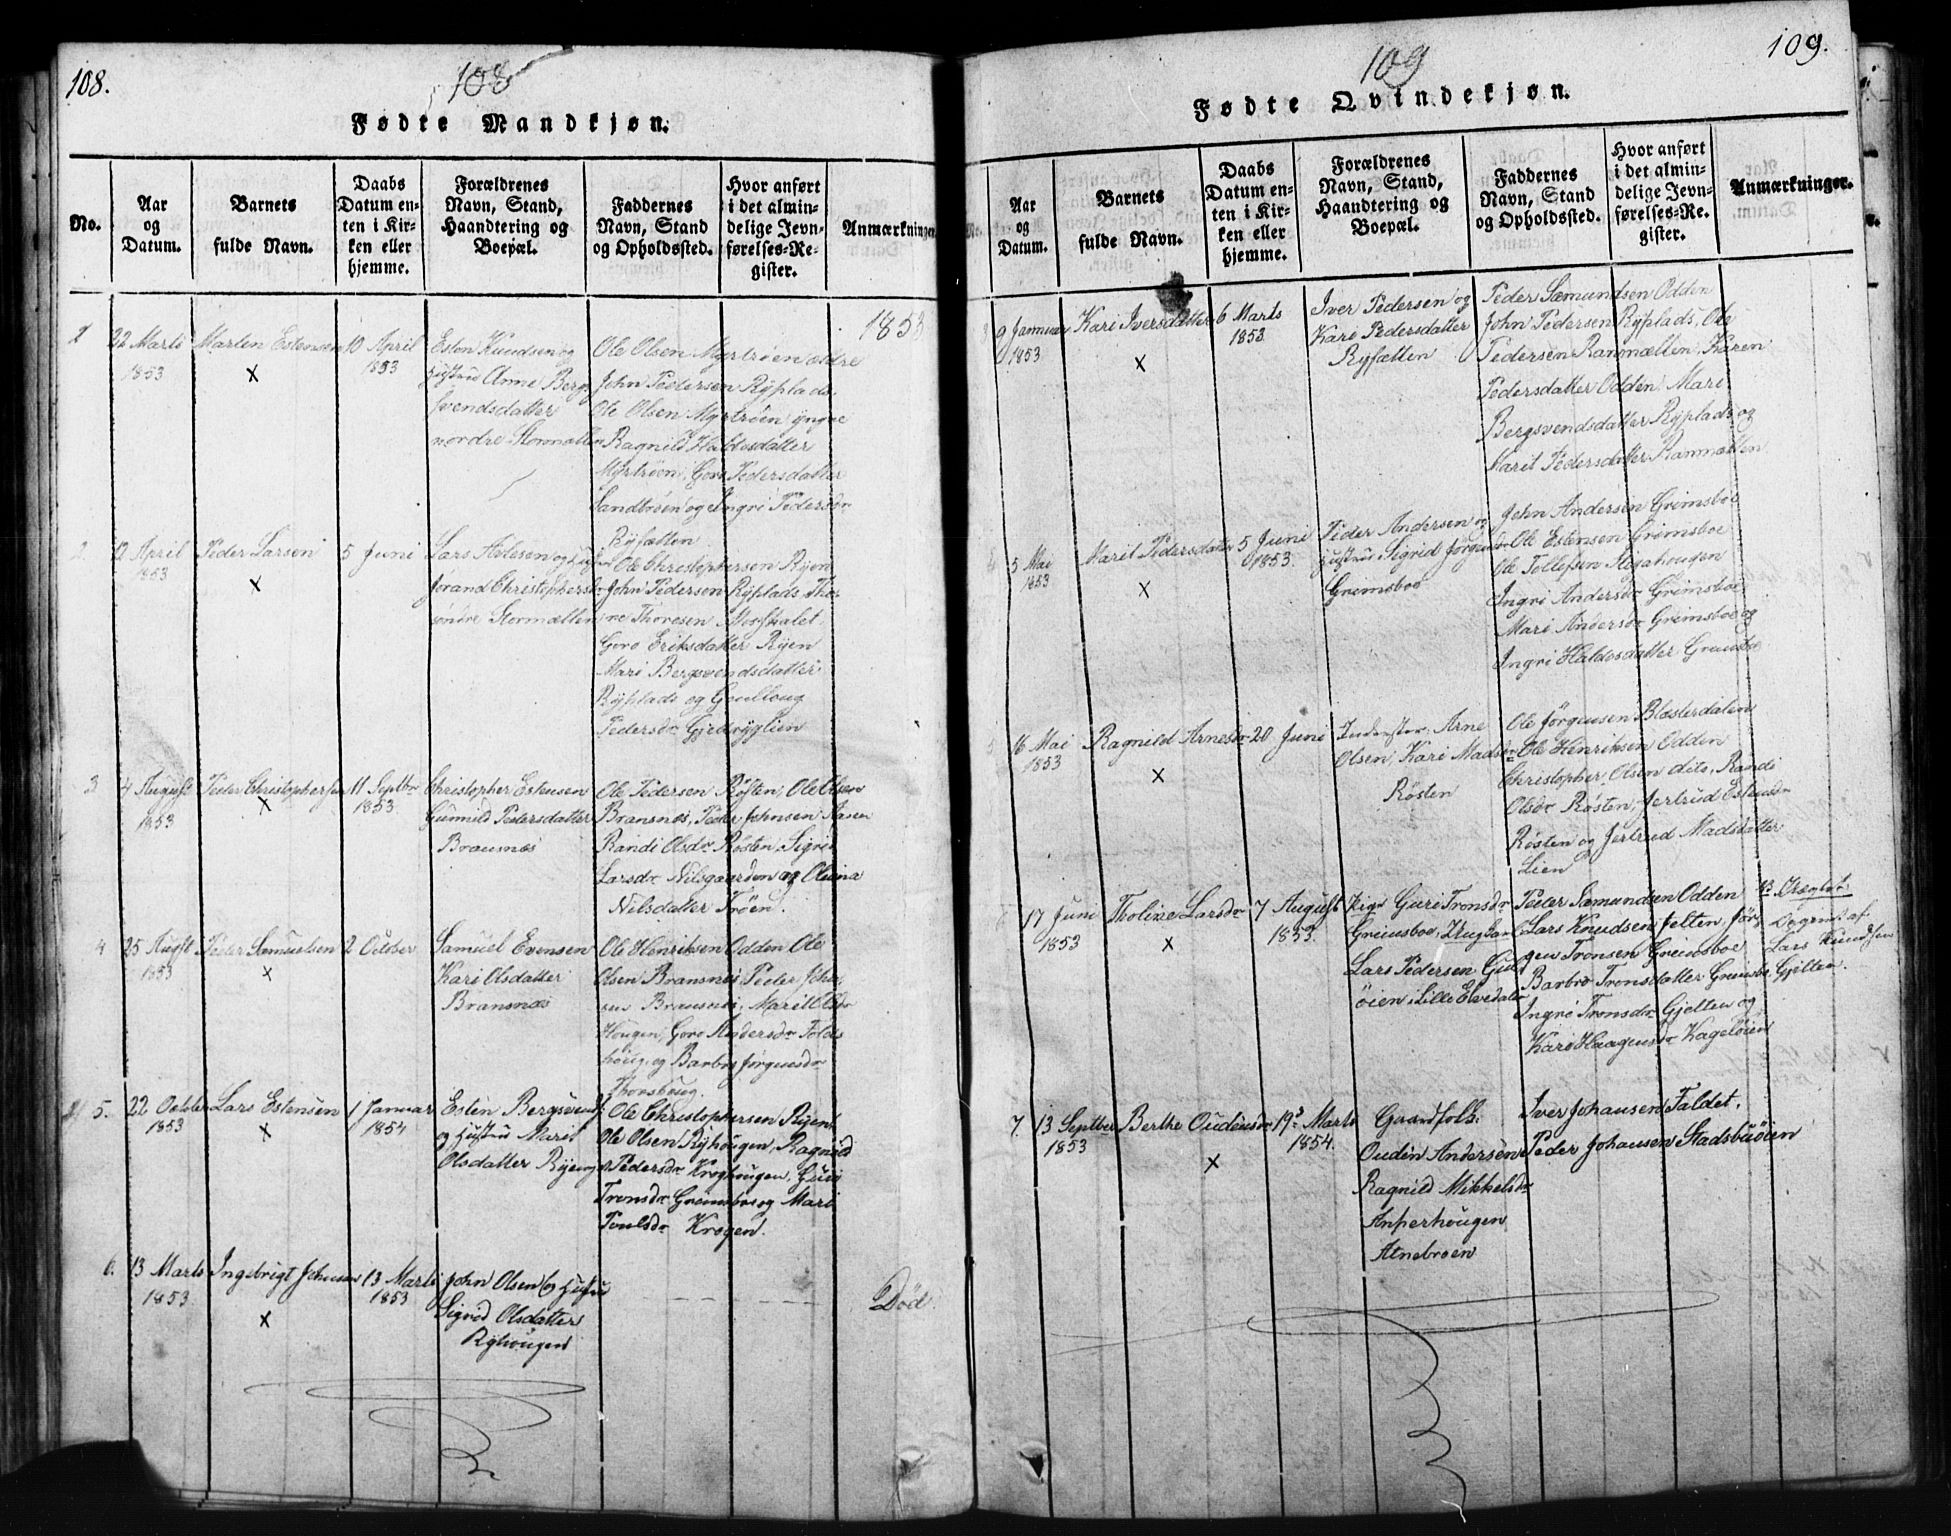 108.
108
Fødte Mandkjøn.
No.
Aar
og
Datum.
Barnets
fulde Navn.
Daabs
Datum en-
ten i Kir-
ken eller
hjemme.
Forældrenes
Navn, Stand,
Haandtering og
Boepæl.
Faddernes
Navn, Stand
og Opholdssted.
Hvor anført
i det almin-
delige Jevn-
førelses-Re-
gister.
Anmærkninger.
1853
22 Marts
1853
Marten Estensen
x
10 April
1853
Esten Knudsen og
Hustru Anne Berg-
svendsdatter
nordre Stormætten
Ole Olsen Myrtrøen ældre
John Pedersen Ryplads.
Ole Olsen Myrtrøen yngre
Ragnild Haldosdatter
Myrtrøen, Goro Pedersdatter
Sandtrøen og Ingri Pedersdr
Ryfætten
2.
12 April
1853
Peder Larsen
x
5 Juni
Jørand Christophersdr
søndre Stormætten
Ole Christophersen Ryen
John Pedersen Ryplads Tho-
re Thoresen
Goro Eriksdatter Ryen
Mari Bergsvendsdatter
Ryplads og Gunlloug
Pedersdr
3
4 August
1853
Peder Christophersen
x
11 Septbr
1853
Christopher Estensen
Gunnild Pedersdatter
Bransnes
Ole Pedersen Røsten, Ole Olsen
Bransnes, Peder Johnsen
Randi Olsdr Røsten, Sigrid
Larsdr Nilsgaarden og Oleana
Nilsdatter Trøen.
4
25 Augst
1853
Peder Samuelsen
x
2 October
Samuel Evensen
Kari Olsdatter
Bransnes
Ole Henriksen Odden Ole
Olsen Bransnes Peder John-
sen Bransnes, Marit Olsdr
Hougen, Goro Andersdr
houg og Barbro Jørgensdr
5.
22 October
1853
Lars Estensen
x
1 Januar
1854
Esten Bergsvends
og Hustru Marit
Olsdatter Ryeng
Ole Christophersen Ryen
Ole Olsen Ryhougen, Ragnild
Pedersdr Kroghougen, Guri
Tronsdr Grimsboe og Mari
Poulsdr Krogen.
6.
13 Marts
1853
Ingebrigt Johnsen
x
13 Marts
1853
John Olsen og Hustru
Sigrid Olsdatter
Ryhougen
Død.
109
109.
Fødte Qvindekjøn.
No.
Aar
og
Datum.
Barnets
fulde Navn.
Daabs
Datum en-
ten i Kir-
ken eller
hjemme.
Forældrenes
Navn, Stand,
Haandtering og
Boepæl.
Faddernes
Navn, Stand
og Opholdssted.
Hvor anført
i det almin-
delige Jevn-
førelses-Re-
gister.
Anmærkninger.
3
9 Januar
1853
Kari Iversdatter
x
6 Marts
1853
Iver Pedersen og
Kari Pedersdatter
Ryfætten
Peder Sæmundsen Odden
John Pedersen Ryplads, Ole
Pedersen Ranmætten, Karen
Pedersdatter Odden, Mari
Bergsvendsdatter Ryplads og
Marit Pedersdatter Ranmætten
4
5 Mai
1853
Marit Pedersdatter
x
5 Juni
1853.
Peder Andersen og
Hustru Sigrid Jørgensdr
Grimsboe
John Andersen Grimsboe
Ole Estensen Grimsboe
Ole Tollefsen
Ingri Andersdr Grimsboe
Mari Andersdr Grimsboe og
Ingri Haldosdatter Grimsboe
5
16 Mai
1853
Ragnild Arnesdr
x
20 Juni
Inderster Arne
Olsen, Kari Madsdr
Røsten
Ole Jørgensen Blæsterdalen
Ole Henriksen Odden
Christopher Olsen dito, Randi
Olsdr Røsten, Jertrud Estensdr
Røsten og Jertrud Madsdatter
Lien
6
17 Juni
1853
Tholine Larsdr
x
7 August
1853.
Pige Guri Tronsdr
Grimsboe, Ungkarl
Lars Pedersen
øien i Lille Elvedalen
Peder Sæmundsen Odden
Lars Knudsen Jelten, Jør-
gen Tronsen Grimsboe
Barbro Tronsdatter Grimsbo
Ingri Tronsdr Gjelten og
Kari Haagensdr Kageløien
Lars Knudsen
Gjelten.
7.
13 Septber
1853
Berthe Oudensdr
x
19de Marts
1854.
Gaardfolk:
Ouden Andersen
Ragnild Mikkelsdr
Anperhougen
Atnebroen
Iver Johansen Faldet,
Peder Johansen Stadsbuøien